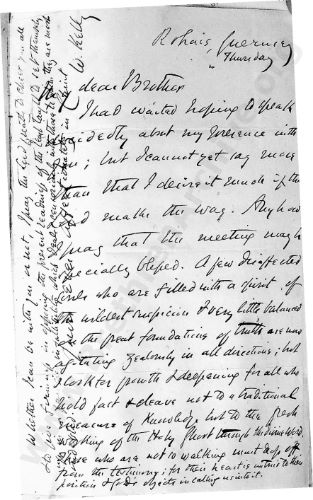 Rohais, Guernsey
Thursday
My dear Brother
I had wanted hoping to speak
decidedly about my presence with
you; but I cannot yet say more
than that I desire it much if the
Lord makes the way. Anyhow
I pray that the meeting may be
especially blessed. A few disaffected
souls who are filled with a spirit of
the wildest suspicion & very little balanced
in the great foundations of truth are now
agitating zealously in all directions; but
I look for growth & deepening for all who
hold fast & cleave not to a traditional
measure of knowledge, but to the fresh
working of the Holy Ghost through the divine word.
Those who are not so walking must drop off
from the testimony; for their heart is untrue to their
position & God's objects in calling us into it.
Whether I can be with you or not, I pray the Lord greatly to bless you all
W Kelly